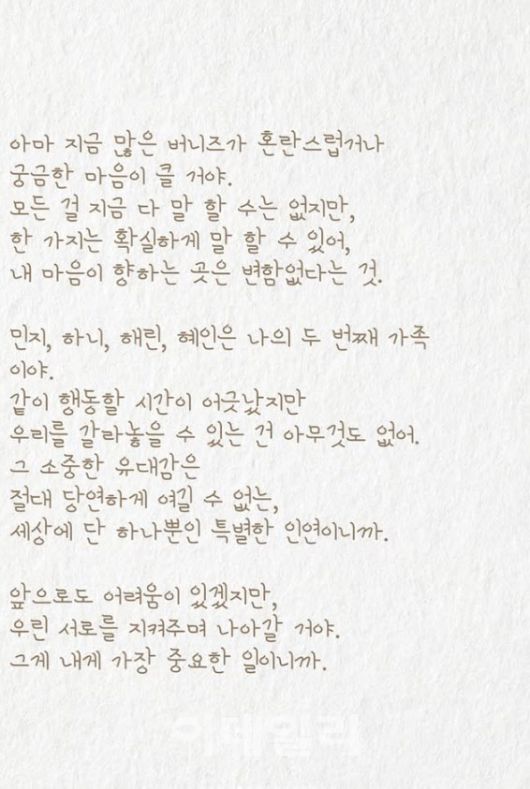 아마 지금 많은 버니즈가 혼란스럽거나
궁금한 마음이 클 거야.
모든 걸 지금 다 말 할 수는 없지만,
한 가지는 확실하게 말 할 수 있어,
내 마음이 향하는 곳은 변함없다는 것.
민지, 하니, 해린, 혜인은 나의 두 번째 가족
이야.
같이 행동할 시간이 어긋났지만
우리를 갈라놓을 수 있는 건 아무것도 없어.
그 소중한 유대감은
절대 당연하게 여길 수 없는,
세상에 단 하나뿐인 특별한 인연이니까.
앞으로도 어려움이 있겠지만,
우린 서로를 지켜주며 나아갈 거야.
그게 내게 가장 중요한 일이니까.
이데일리